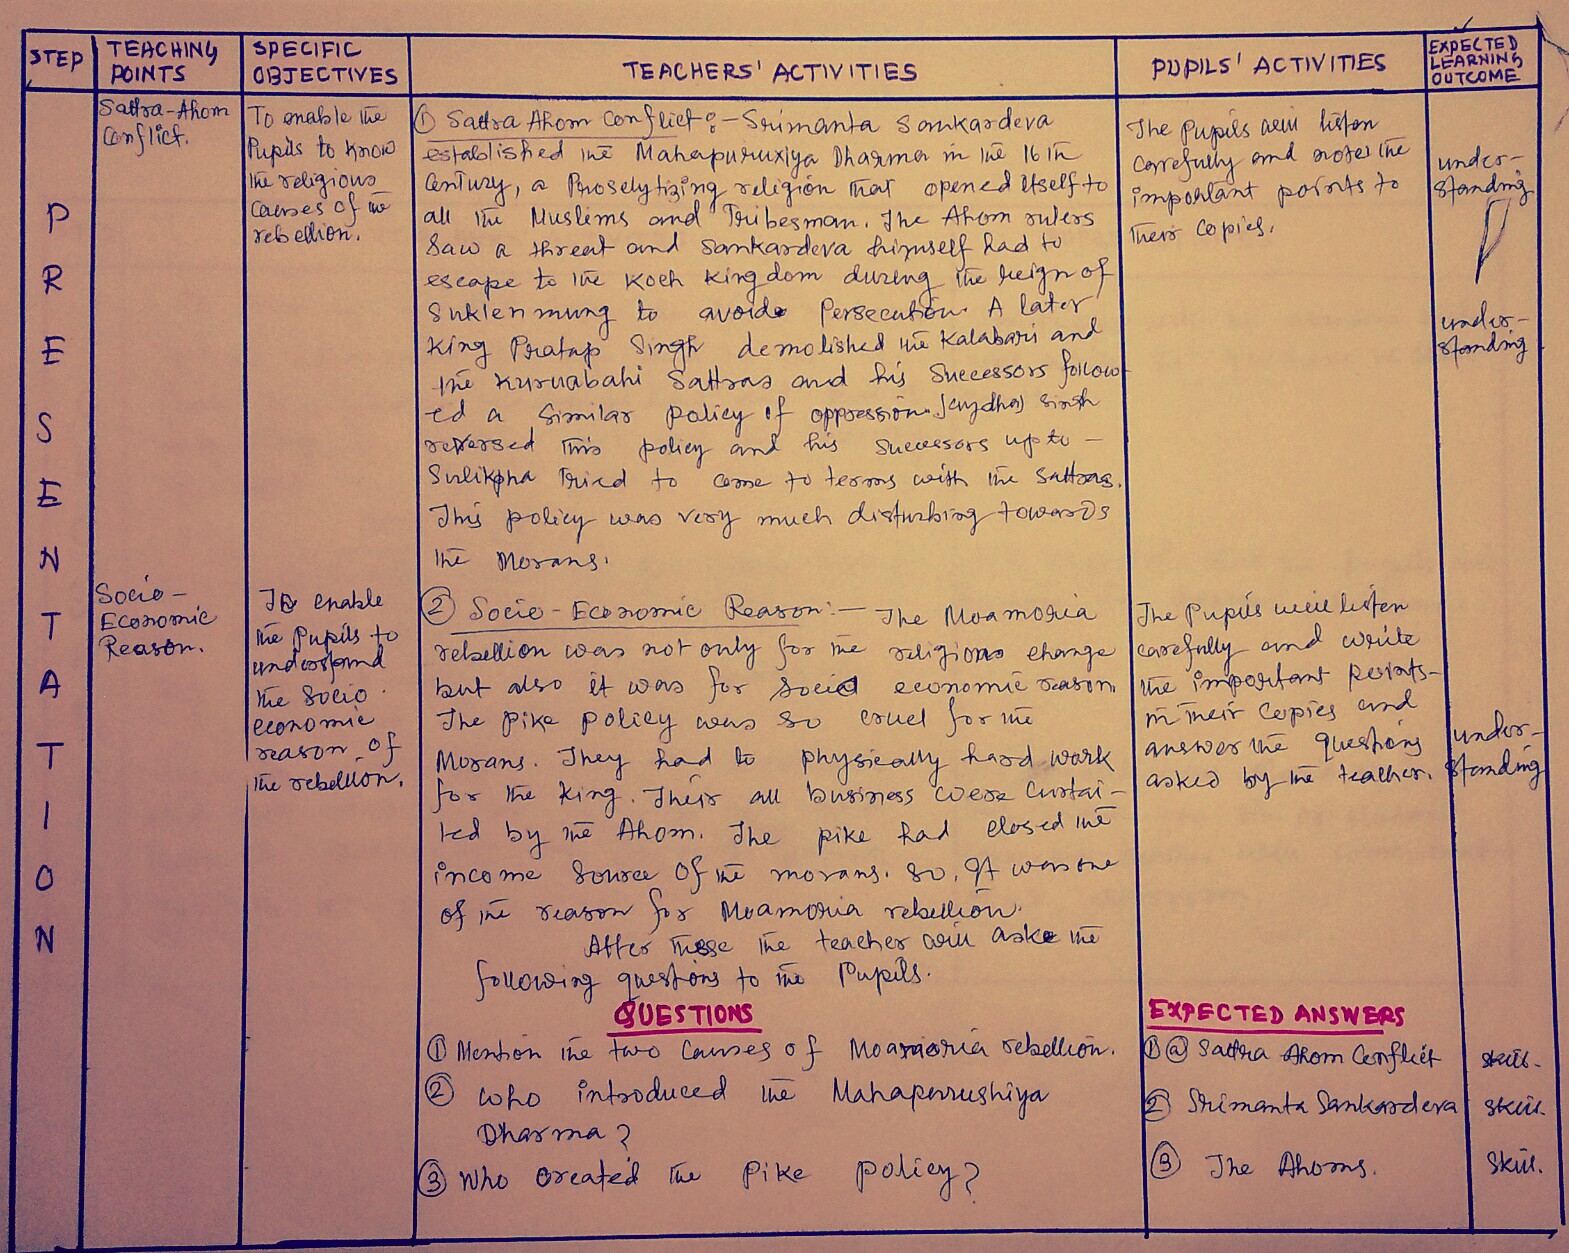 STEP
TEACHING
POINTS
SPECIFIC
OBJECTIVES
TEACHERS' ACTIVITIES
PUPILS' ACTIVITIES
EXPECTED
LEARNING
OUTCOME
PRESENTATION
Sattra-Ahom
Conflict.
To enable the
Pupils to know
the religious
causes of the
rebellion.
① Sattra Ahom Conflict :- Srimanta Sankardeva
established the Mahapuruxiya Dharma in the 16 th
Century, a Proselytizing religion that opened itself to
all the Muslims and Tribesman. The Ahom rulers
Saw a threat and Sankardeva himself had to
escape to the Koch Kingdom during the reign of
Suklenmung to avoide Persecution. A later
King Pratap Singh demolished the Kalabari and
the Kuruabahi Sattras and his Successors follow-
ed a Similar policy of oppression. Jaydhaj Singh
reversed this policy and his Successors up to -
Sulikpha Tried to come to terms with the Sattras.
This policy was very much disturbing towards
the Morans.
The Pupils will listen
carefully and notes the
important points to
their copies.
under-
standing
under-
standing
Socio-
Economic
Reason.
To enable
the Pupils to
understand
the Socio
economic
reason of
the rebellion.
② Socio-Economic Reason:- The Moamoria
rebellion was not only for the religious change
but also it was for Social economic reason.
The Pike policy was so cruel for the
Morans. They had to physically hard work
for the King. Their all business were Curtai-
led by the Ahom. The pike had closed the
income Source Of the morans. So, It was one
of the reason for Moamoria rebellion.
After these the teacher will aske the
following questions to the Pupils.
The Pupils will listen
carefully and write
the important points-
in their Copies and
answer the questions
asked by the teacher.
under-
standing
QUESTIONS
① Mention the two Causes of Moamoria rebellion.
② Who introduced the Mahapurushiya
Dharma ?
③ Who created the Pike policy?
EXPECTED ANSWERS
① ⓐ Sattra Ahom Conflict
② Srimanta Sankardeva
③ The Ahoms.
Skill.
Skill.
Skill.